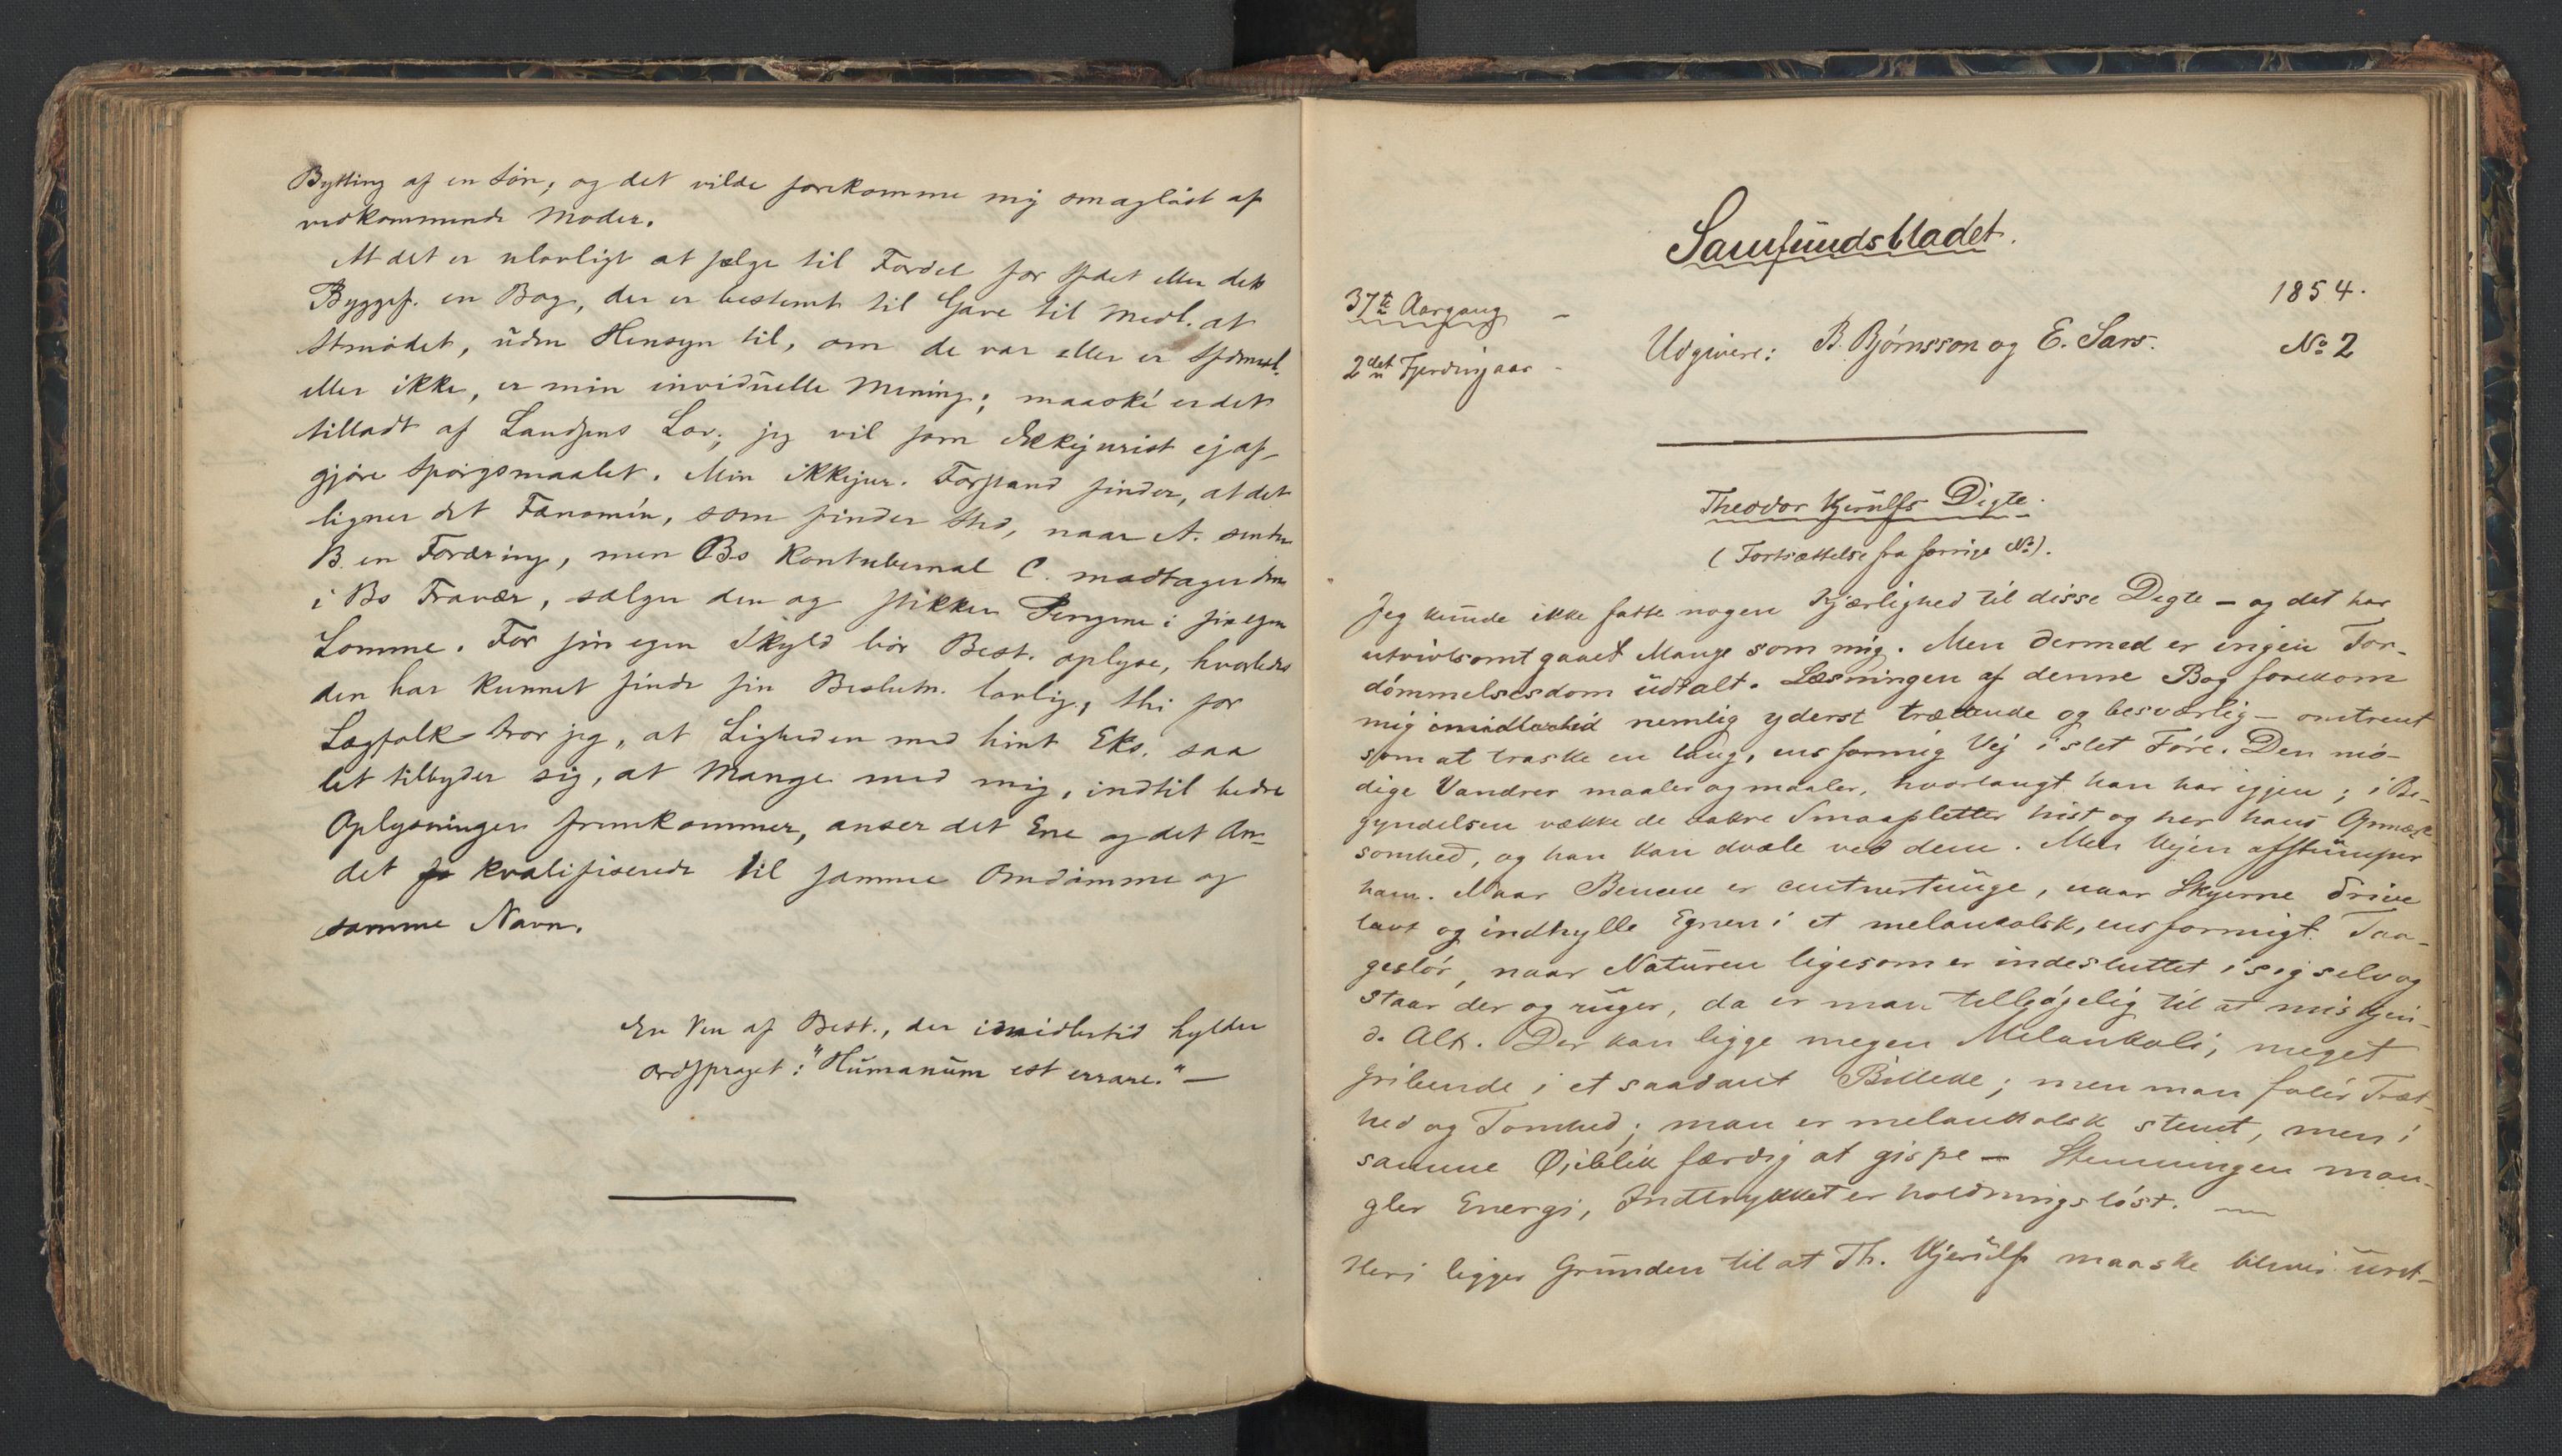 Bytting af en Søn, og det vilde forekomme mig smagløst af
vedkommende Moder.
At det er ulovligt at sælge til Fordel for Sfdet eller dets
Byggef. en Bog, der er bestemt til Gave til Medl. at
Stmødet, uden Hensyn til, om de var eller er Sfdmedl.
eller ikke, er min inviduelle Mening; maaské er det
tilladt af Landsens Lov; jeg vil som Ikkejurist ej af-
gjøre Spørgsmaalet. Min ikkejur. Forstand finder, at det
ligner det Fænomén, som finder Sted, naar A. sender
B. en Foræring, men Bs Kontubernal C. modtager den
i Bs Fravær, sælger den og stikker Pengene i sin egen
Lomme. For sin egen Skyld bør Best. oplyse, hvorledes
den har kunnet finde sin Beslutn. lovlig, thi for
Lægfolk tror jeg, at Ligheden med hint Eks. saa
let tilbyder sig, at Mange med mig, indtil bedre
Oplysninger fremkommer, anser det Ene og det An-
det kvalifiserede til samme Omdømme og
samme Navn.
En Ven af Best., der imidlertid hylder
Ordsproget: "Humanum est errare." —
Samfundsbladet.
37te Aargang –
1854.
2det Fjerdingaar –
Udgivere: B. Bjørnsson og E. Sars.
No 2
Theodor Kjerulfs Digte.
(Fortsættelse fra forrige No).
Jeg kunde ikke fatte nogen Kjærlighed til disse Degte — og det har
utvivlsomt gaaet Mange som mig. Men dermed er ingen For-
dømmelsesdom udtalt. Læsningen af denne Bog forekom
mig imidlertid nemlig yderst trættende og besværlig — omtrent
som at traske en lang, ensformig Vej i slet Føre. Den mö-
dige Vandrer maaler og maaler, hvorlangt han har igjen; i Be-
gyndelsen vække de vakre Smaapletter hist og her hans Opmærk-
somhed, og han kan dvæle ved dem. Men Vejen afstumper
ham. Naar Benene er centnertunge, naar Skyerne drive
lavt og indhylle Egnen i et melankolsk, ensformigt Taa-
geslør, naar Naturen ligesom er indesluttet i sig selv og
staar der og ruger, da er man tilbøjelig til at miskjen-
de Alt. Der kan ligge megen Melankoli, meget
gribende i et saadant Billede; men man føler Træt-
hed og Tomhed; man er melankolsk stemt, men i
samme Øjeblik færdig at gispe — Stemningen man-
gler Energi, Indtrykket er holdningsløst. —
Heri ligger Grunden til at Th. Kjerulf maaske bliver uret-